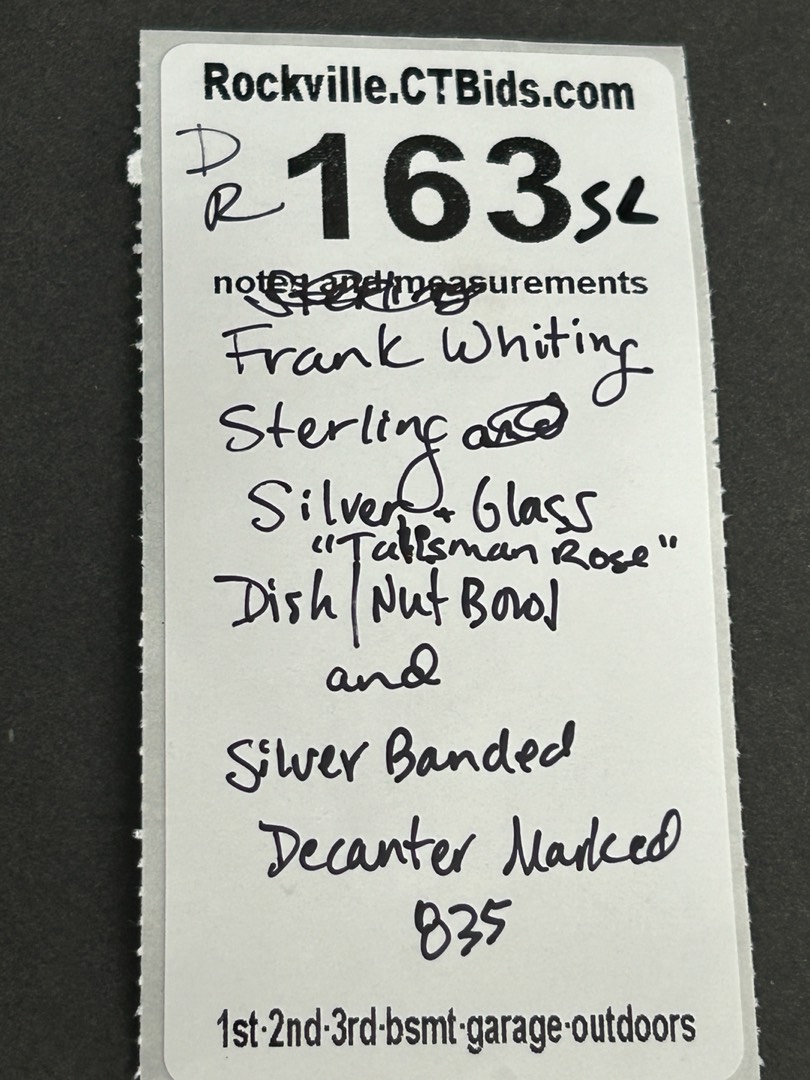 Rockville.CTBids.com
D
R 163SL
notes and measurements
Frank Whiting
Sterling
Silver + Glass
"Talisman Rose"
Dish/Nut Bowl
and
Silver Banded
Decanter Marked
835
1st·2nd·3rd·bsmt·garage·outdoors